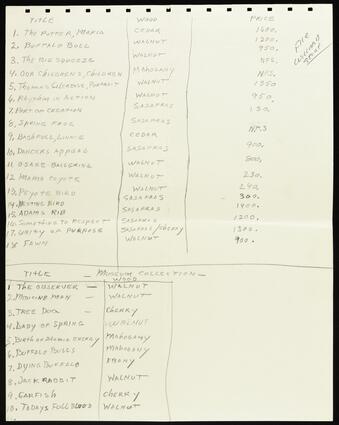 TITLE WOOD PRICE
1. THE PUTTER, MARIA CEDAR 1600.
2. BUFFALO BULL WALNUT 1200.
3. THE BIG SQUEEZE WALNUT 950.
4. OUR CHILDREN'S, CHILDREN MAHOGANY NFS.
5. THOMAS GILCREASE, PORTRAIT WALNUT 1350
6. RHYTHM IN ACTION WALNUT 950
7. PART ON CREATION SASAFRAS 130.
8. SPRING FROG SASAFRAS
9. BASHFULL, LINNIE CEDAR NFS
10. DANCERS APPEAL SASAFRAS 900.
11. OSAGE WALNUT 800.
12 MAMA COYOTE WALNUT 230.
13. PEYOTE BIRD WALNUT 240.
14. NESTING BIRD SASAFRAS 300.
15. ADAMS RIB SASAFRAS 1400.
16. SOMETHING TO RESPECT SASAFRAS 1200.
17. UNITY OF PURPOSE SASAFRAS/CHERRY 1300.
18 FAWN WALNUT 900.
FILE
WILLARD
STONE
TITLE — MUSEUM COLLECTION —
WOOD
1 THE OBSERVER — WALNUT
2. MEDICINE MAN — WALNUT
3. TREE DOG — CHERRY
4. LADY OF SPRING WALNUT
5. BIRTH OF ATOMIC ENERGY MAHOGANY
6. BUFFALO BULLS MAHOGANY
7. DYING BUFFALO EBONY
8. JACK RABBIT WALNUT
9. GARFISH CHERRY
10. TODAYS FULL BLOOD WALNUT